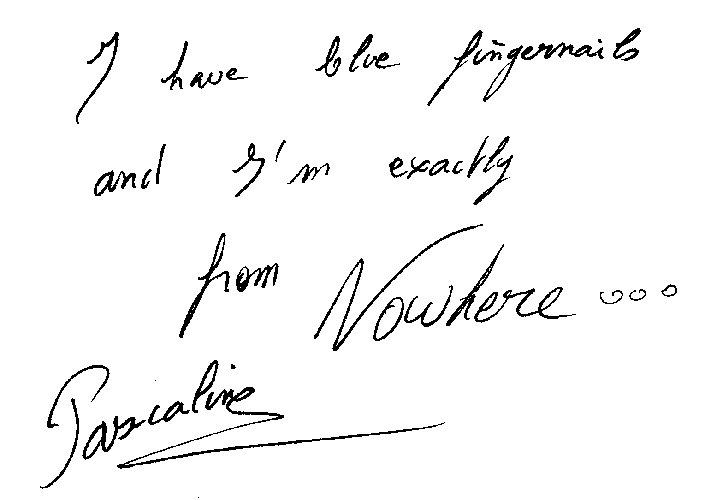 I have blue fingernails
and I'm exactly
from Nowhere...
Pascaline